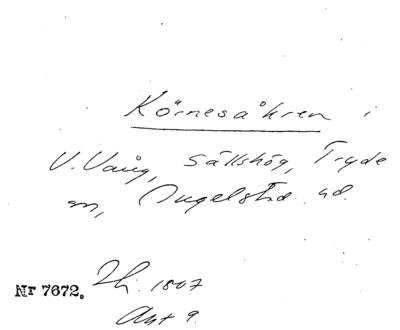 Körnesåkren i
V. Vång, Sällshög, Tryde
sn, Ingelstad hd.
Nr 7672. Lh. 1807
Akt 9.